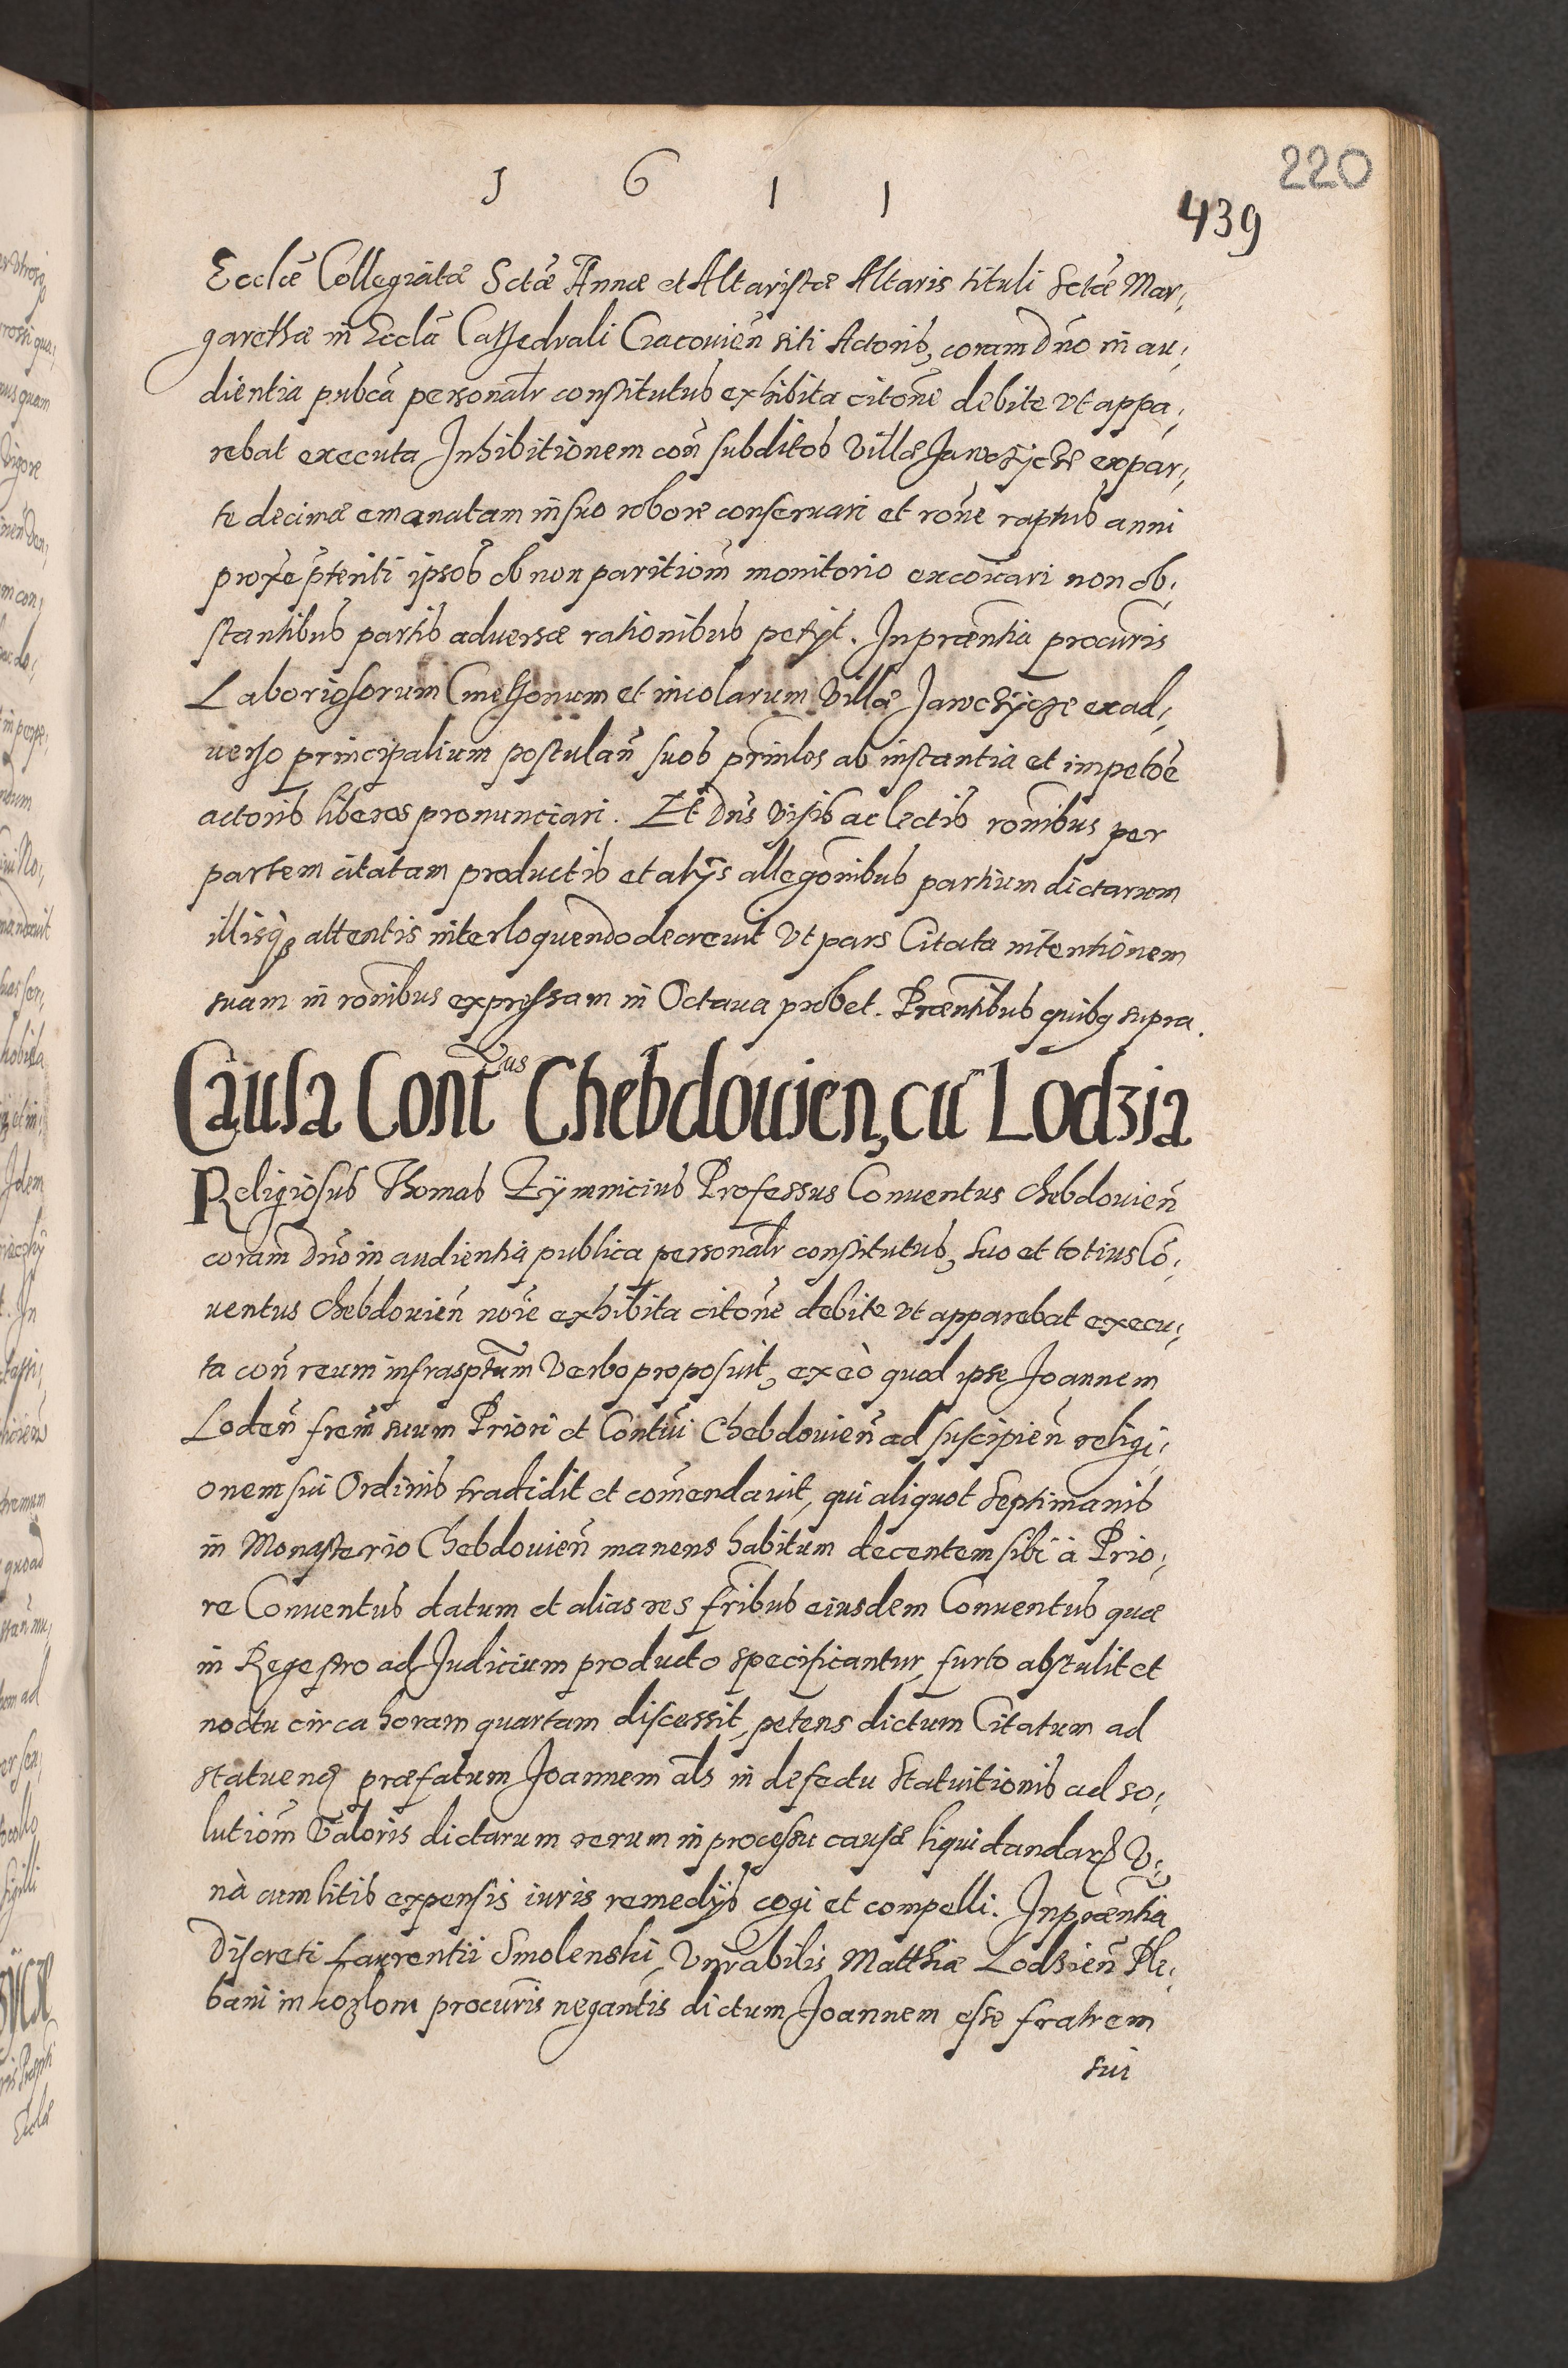 220
1 6 1 1
439
Ecclæ̃ Collegiatæ Sctæ̃ Annæ et Altaristæ Altaris tituli Sctæ̃ Mar,
garethæ in Eccla͂ Cathedrali Cracouieñ siti Actoris, coram Dño in au,
dientia pub͂ca personalr̃ constitutus exhibita cito͂ne debite vt appa,
rebat executa Inhibitionem coñ subditos Villæ Jawczÿcze ex par,
te decimæ emanatam in suo robore conseruari et ro͂ne raptus anni
proxe͂ p͂teriti ipsos ob non paritiom͂ monitorio exco͂icari non ob,
stantibus partis aduersæ rationibus petÿt. In præntia͂ procuris͂
Laboriosorum Cmethonum et incolarum Villæ Jawczÿcze ex ad,
uerso principalium postulañ suos prinl͂es ab instantia et impeto͂e
actoris liberos pronunciari. Et Dñs visis ac lectis ronibus͂ per
partem citatam productis et alÿs allegonibus͂ partium dictarum
illisq̃ attentis interloquendo decreuit Vt pars Citata intentionem
suam in ronibus͂ expressam in Octaua probet. Præntibus͂ quibq supra.
Causa Cont͂us Chebdouien, cu͂ Lodzia
Religiosus Thomas Zÿmnicius Professus Conuentus Chebdouieñ
coram Dño in audientia publica personalr̃ constitutus, suo et totius Co͂,
uentus Chebdouieñ no͂ie exhibita cito͂ne debite vt apparebat execu,
ta coñ reum infrasptum͂ Verbo proposuit, ex eò quod ipse Joannem
Lodzeñ frem͂ suum Priori et Contui͂ Chebdouieñ ad suscipieñ religi,
onem sui Ordinis tradidit et com͂endauit, qui aliquot Septimanis
in Monasterio Chebdouieñ manens habitum decentem sibi à Prio,
re Conuentus datum et alias res fribus͂ eiusdem Conuentus quæ
in Regestro ad Judicium producto specificantur, furto abstulit et
noctu circa horam quartam discessit, petens dictum Citatum ad
statuenđ præfatum Joannem als͂ in defectu Statuitionis ad so,
lutiom͂ Valoris dictarum rerum in processu causæ liquidandarꝝ V,
nà cum litis expensis iuris remedÿs cogi et compelli. In præntia͂
Discreti Laurentii Smolenski, Vnrabilis͂ Matthiæ Lodzieñ Ple,
bani in Kozlow procuris͂ negantis dictum Joannem esse fratrem
sui